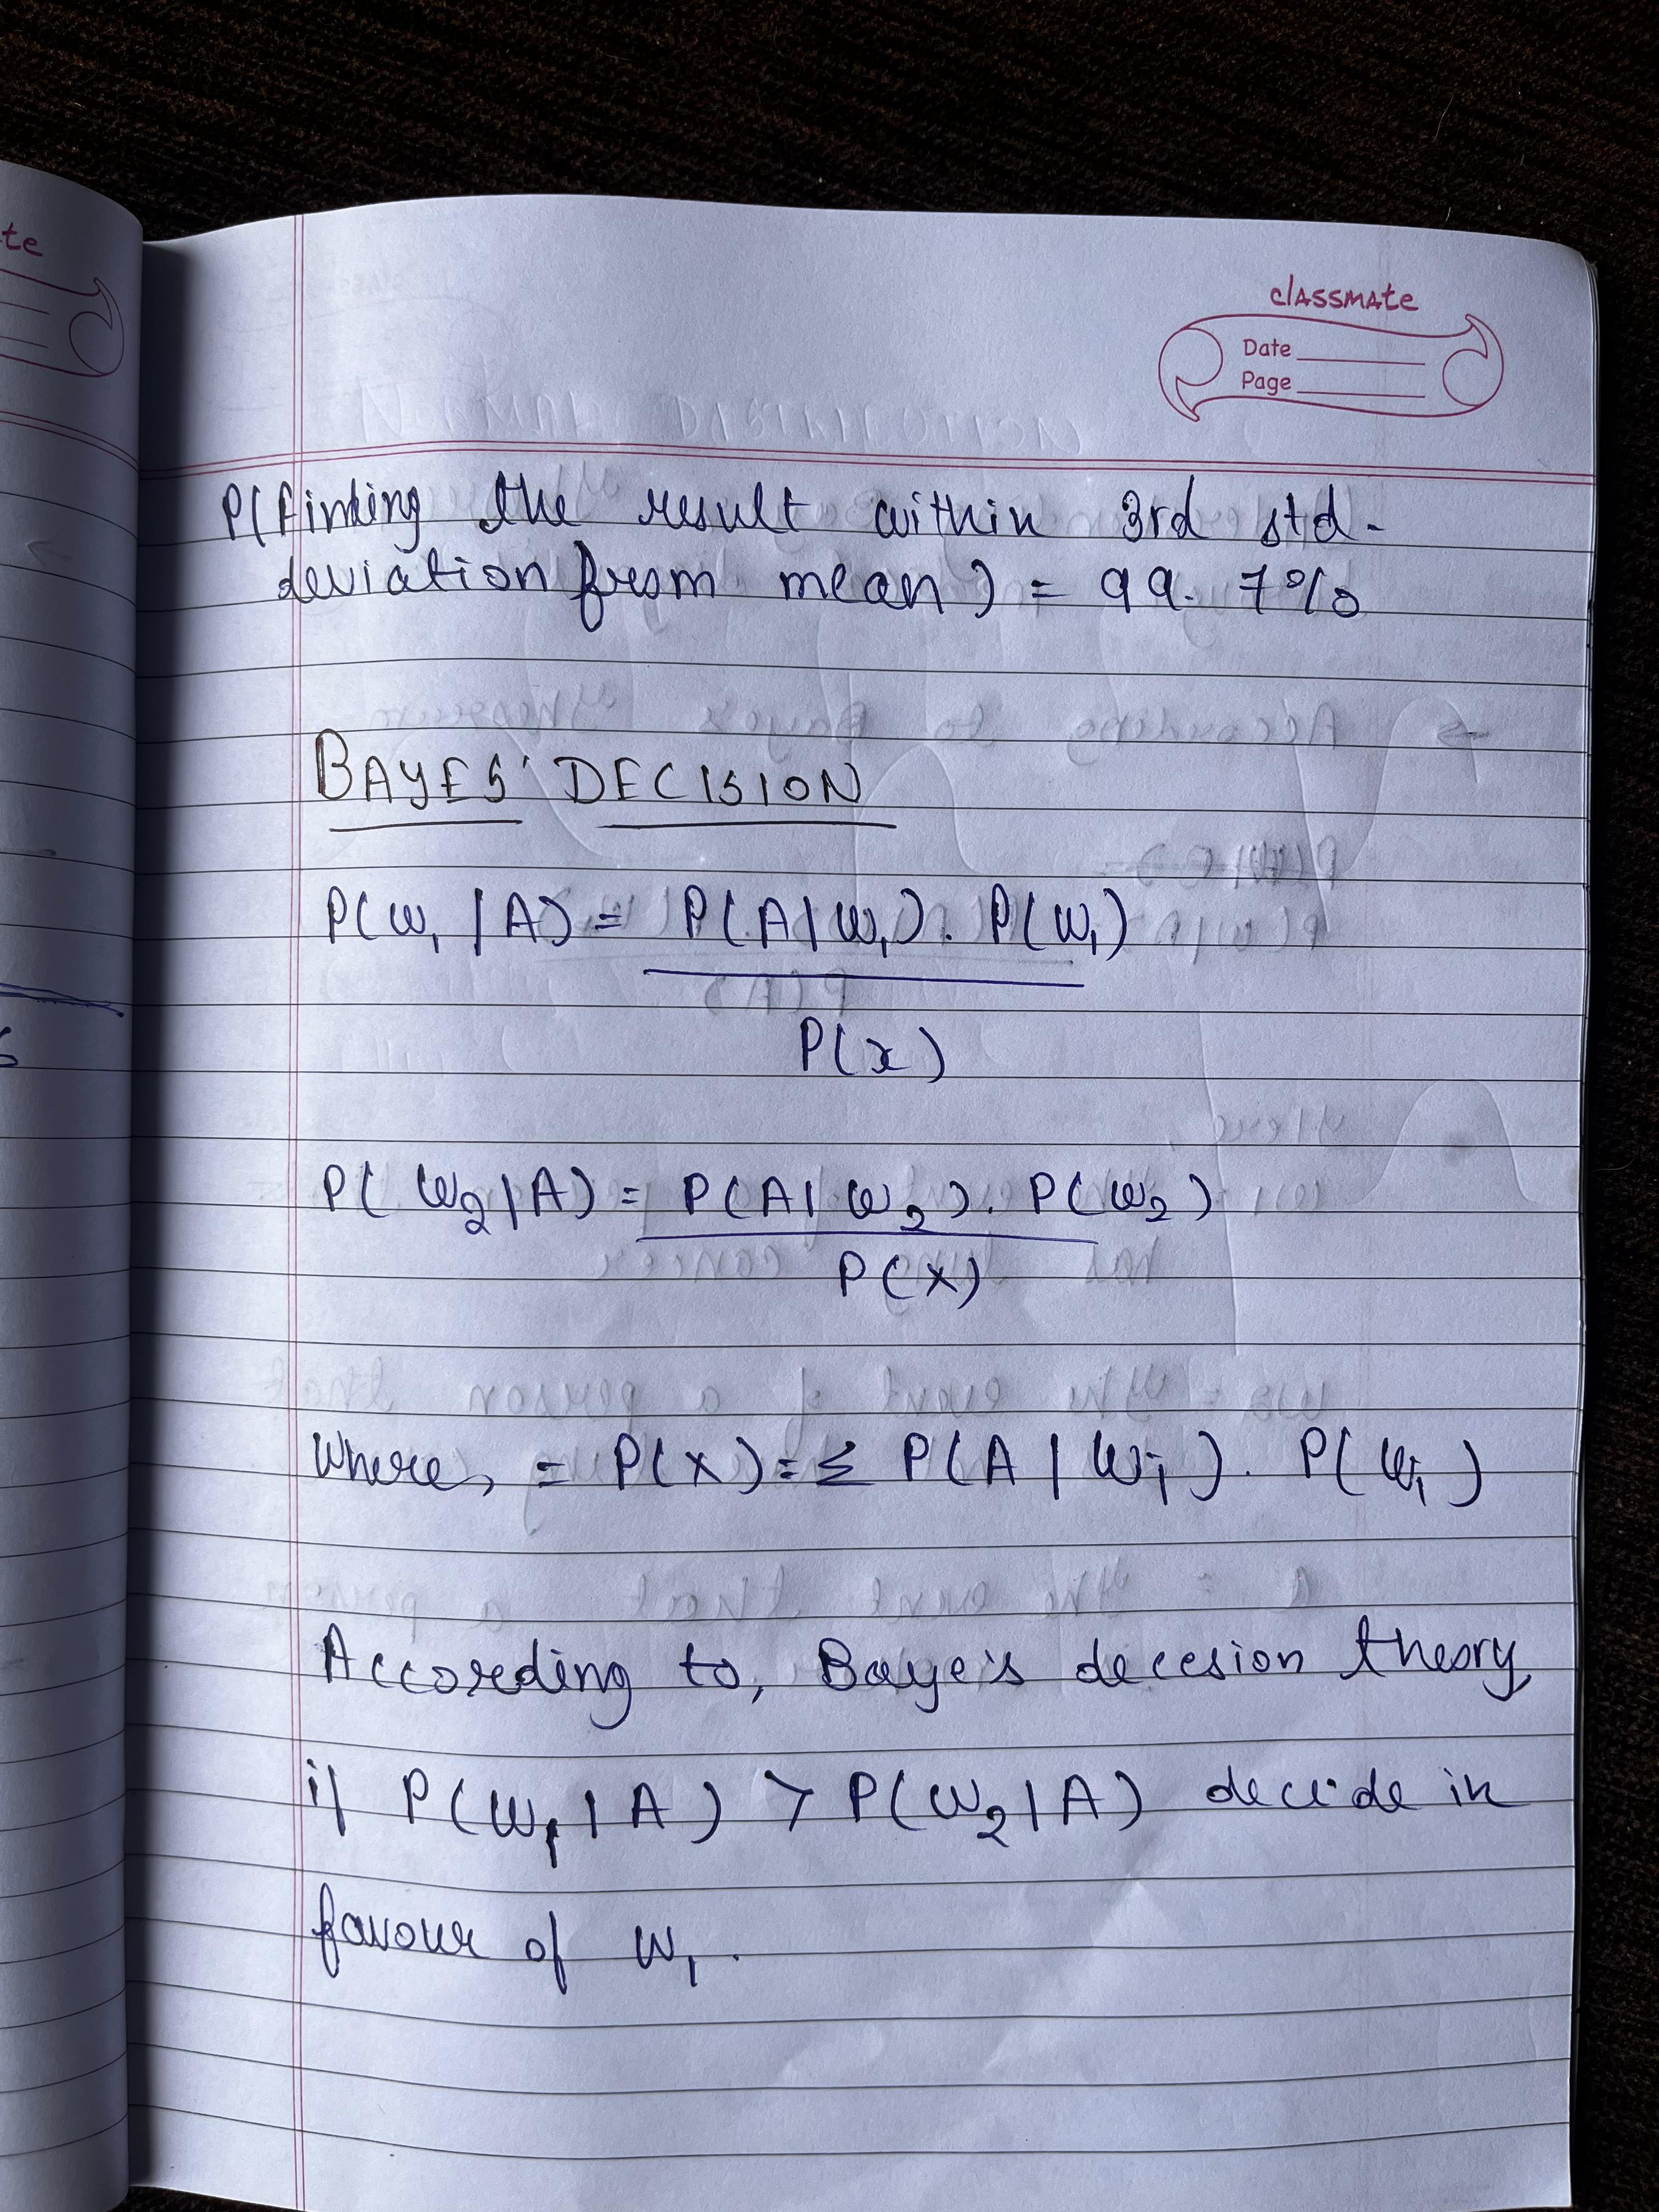 te
classmate
Date
Page
P(finding the result within 3rd std-
deviation from mean) = 99.7%
BAYES' DECISION
P(ω₁ | A) = P(A | ω₁) . P(ω₁)
P(x)
P(ω₂ | A) = P(A | ω₂) . P(ω₂)
P(x)
Where, = P(x) = Σ P(A | ωi) . P(ωi)
According to, Baye's decesion theory,
if P(ω₁ | A) > P(ω₂ | A) decide in
favour of ω₁ .